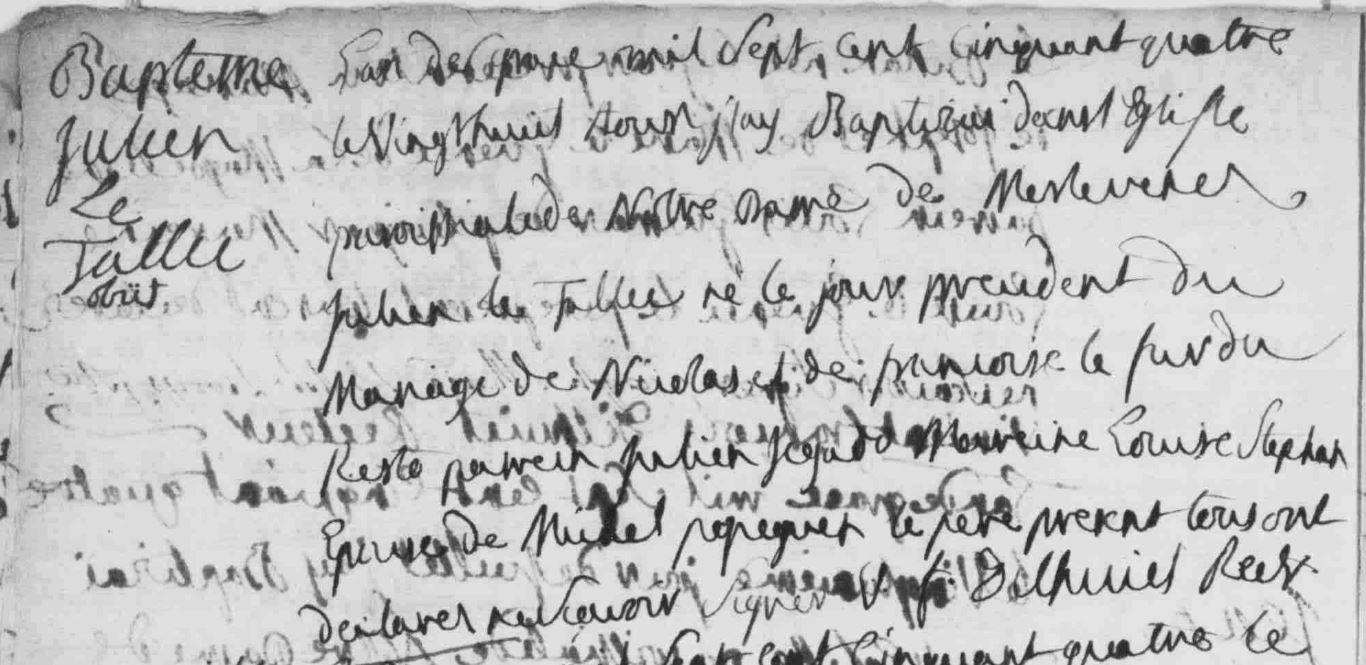 Bapteme
Julien
Le
Tallec
obiit
Lan de grace mil Sept cent Cinquant quatre
le Vingt huit Aout jay Baptizé dans l Eglise
paroissiale de Notre Dame de Merlevenez
Julien le Tallec né le jour precedent du
Mariage de Nicolas et de francoise le
Resto parrein Julien Jegado Marreine Louise Stephan
Epouse de Michel le pere present tous ont
declarer ne scavoir signer f: Rectr
Sept cent Cinquant quatre le